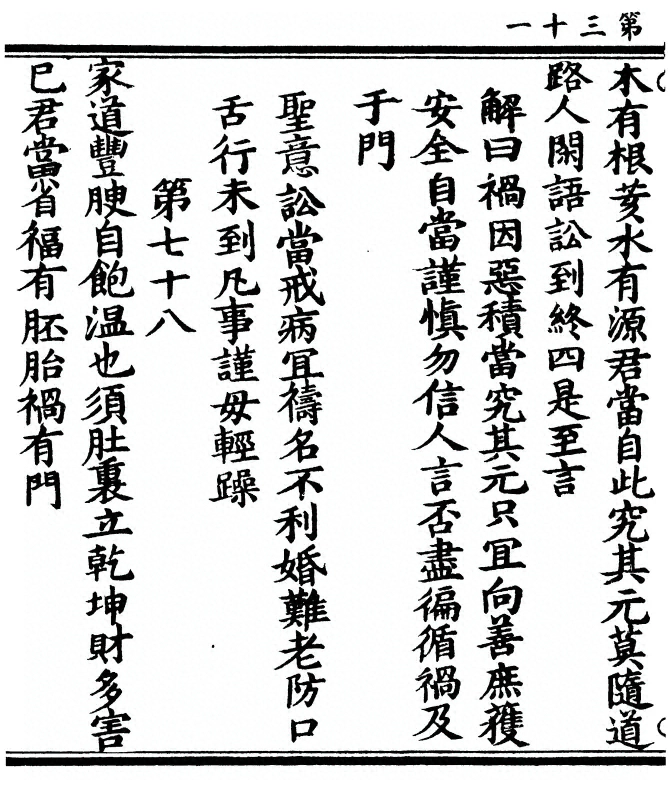 第三十一
木有根荄水有源君當自此究其元莫隨道
路人閑語訟到終凶是至言
解曰禍因惡積當究其元只冝向善庶獲
安全自當謹慎勿信人言否盡徧循禍及
于門
聖意訟當戒病冝禱名不利婚難老防口
舌行未到凡事謹毋輕躁
第七十八
家道豐腴自飽温也須肚裏立乾坤財多害
已君當省福有胚胎禍有門